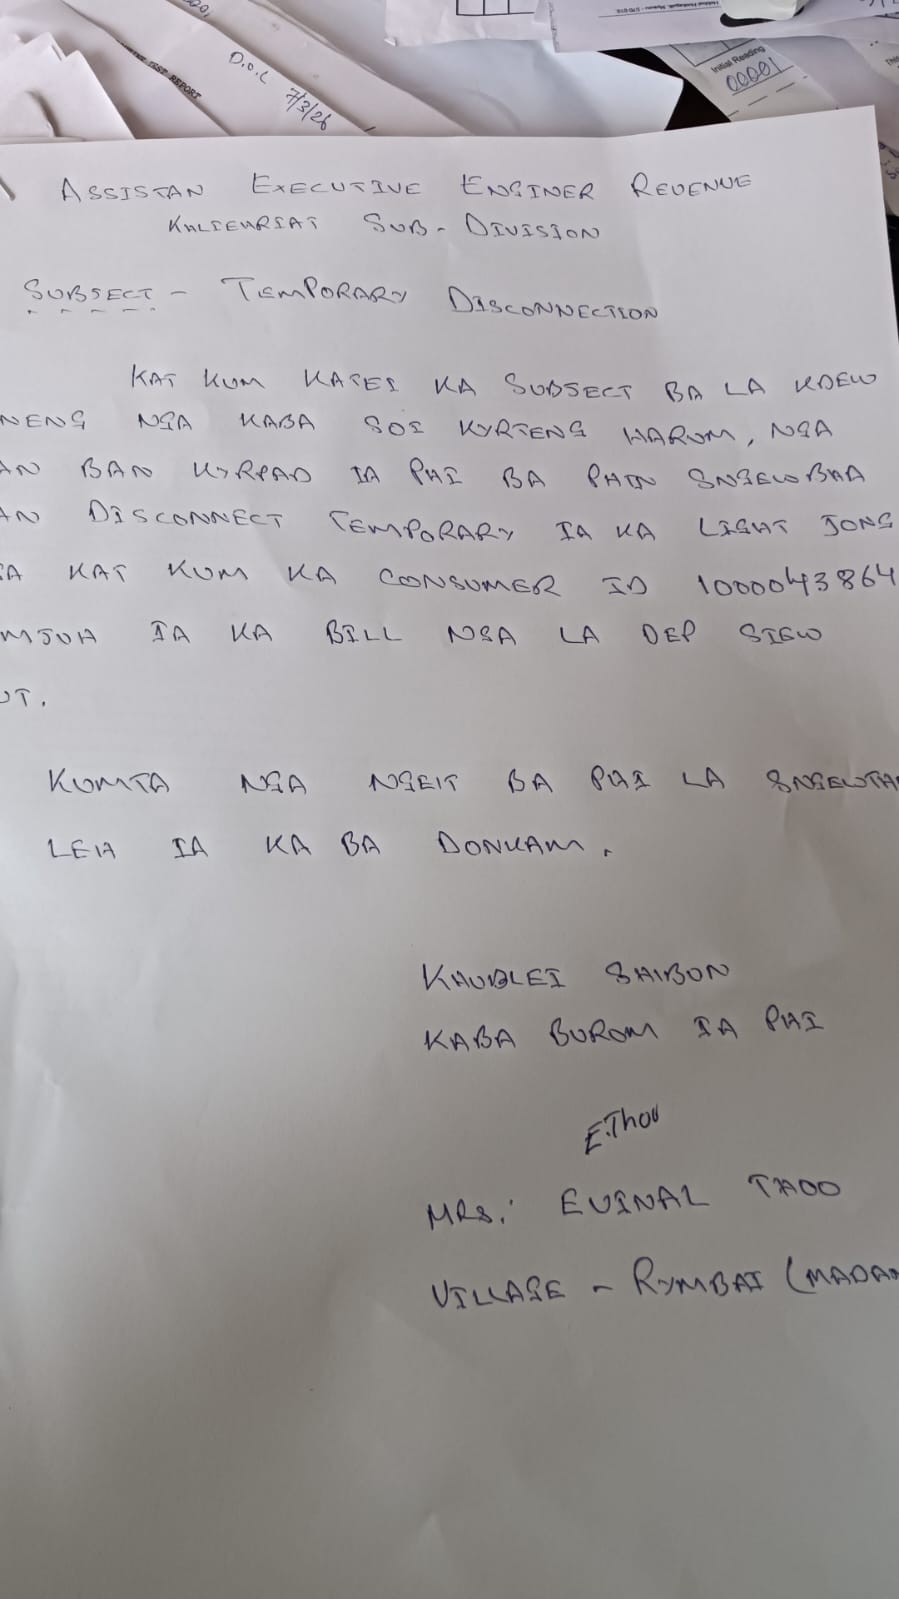 D.O.L
7/3/26
TEST REPORT
Initial Reading
00001
ASSISTAN EXECUTIVE ENGINER REVENUE
KHLIEHRIAT SUB-DIVISION
SUBJECT - TEMPORARY DISCONNECTION
KAT KUM KATEI KA SUBJECT BA LA KDEW
NENG NGA KABA SOI KYRTENG HARUM, NGA
AN BAN KYRPAD IA PHI BA PHIN SNGEWBHA
AN DISCONNECT TEMPORARY IA KA LIGHT JONG
GA KAT KUM KA CONSUMER ID 1000043864
MJUH IA KA BILL NGA LA DEP SIEW
UT.
KUMTA NGA NGEIT BA PHI LA SNGEWTH
LEH IA KA BA DONKAM.
KHUBLEI SHIBON
KABA BUROM IA PHI
E.Thou
MRS. EVINAL THOO
VILLAGE - RYMBAI (MADAN